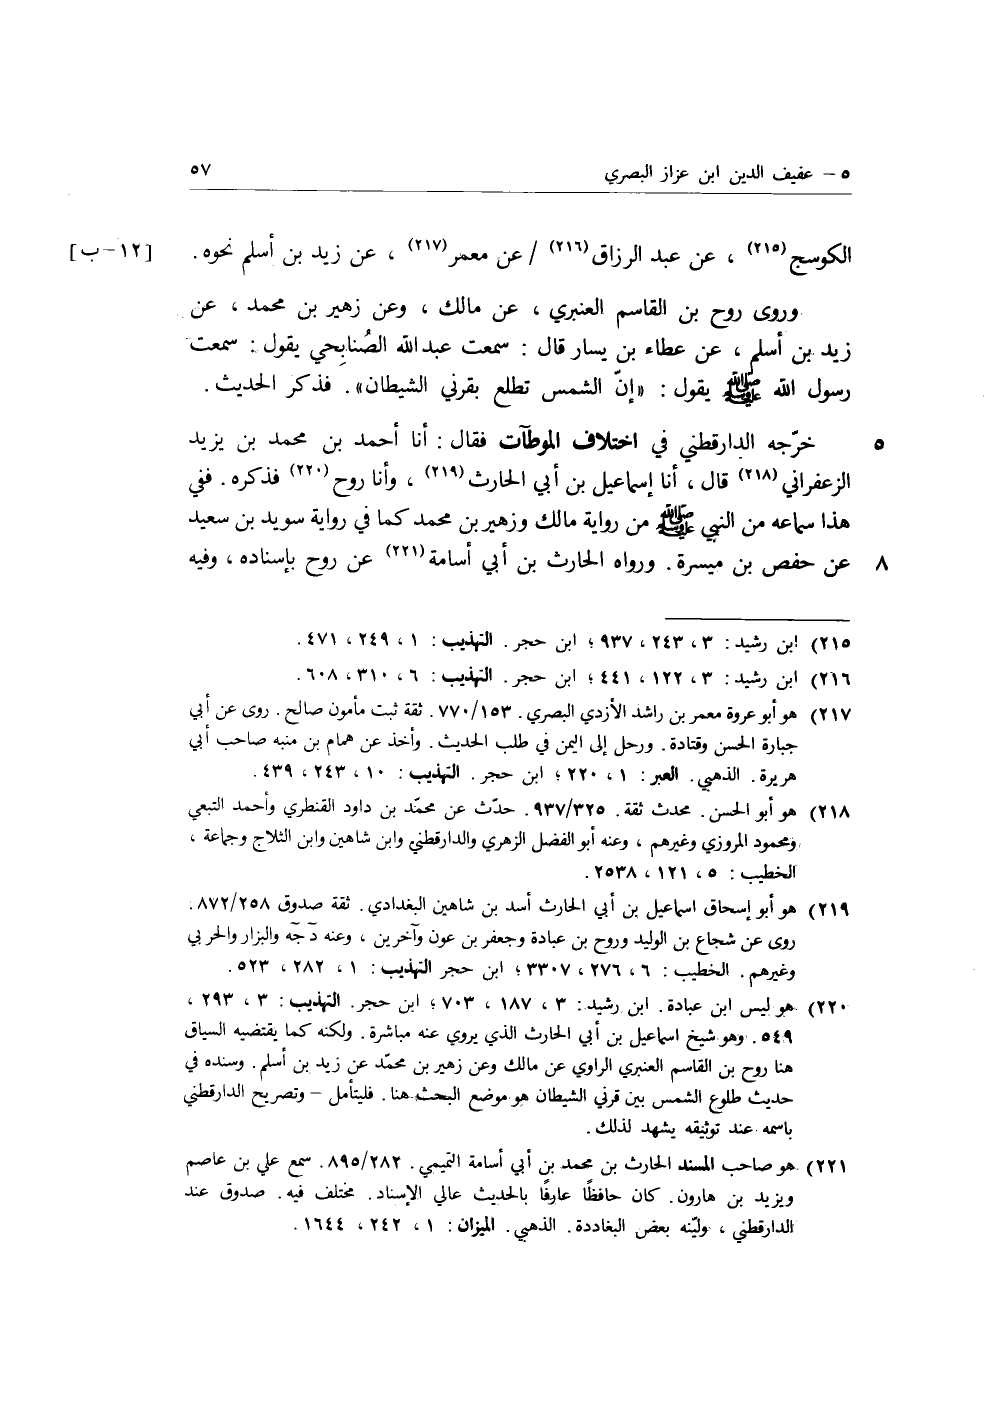 ٥ - عفيف الدين ابن عزاز البصري ٥٧
الكوسج(٢١٥) ، عن عبد الرزاق(٢١٦) / عن معمر(٢١٧) ، عن زيد بن أسلم نحوه. [١٢-ب]
وروى روح بن القاسم العنبري ، عن مالك ، وعن زهير بن محمد ، عن
زيد بن أسلم ، عن عطاء بن يسار قال : سمعت عبدالله الصُنابِحي يقول : سمعت
رسول الله ﷺ يقول : «إنّ الشمس تطلع بقرني الشيطان». فذكر الحديث.
٥ خرّجه الدارقطني في اختلاف الموطآت فقال : أنا أحمد بن محمد بن يزيد
الزعفراني(٢١٨) قال ، أنا إسماعيل بن أبي الحارث(٢١٩) ، وأنا روح(٢٢٠) فذكره. ففي
هذا سماعه من النبي ﷺ من رواية مالك وزهير بن محمد كما في رواية سويد بن سعيد
٨ عن حفص بن ميسرة. ورواه الحارث بن أبي أسامة(٢٢١) عن روح بإسناده ، وفيه
٢١٥) ابن رشيد : ٣ ، ٢٤٣ ، ٩٣٧ ؛ ابن حجر. التهذيب : ١ ، ٢٤٩ ، ٤٧١.
٢١٦) ابن رشيد : ٣ ، ١٢٢ ، ٤٤١ ؛ ابن حجر. التهذيب : ٦ ، ٣١٠ ، ٦٠٨.
٢١٧) هو أبو عروة معمر بن راشد الأزدي البصري. ٧٧٠/١٥٣. ثقة ثبت مأمون صالح. روى عن أبي
جبارة الحسن وقتادة. ورحل إلى اليمن في طلب الحديث. وأخذ عن همام بن منبه صاحب أبي
هريرة. الذهبي. العبر : ١ ، ٢٢٠ ؛ ابن حجر. التهذيب : ١٠ ، ٢٤٣ ، ٤٣٩.
٢١٨) هو أبو الحسن. محدث ثقة. ٩٣٧/٣٢٥. حدّث عن محمّد بن داود القنطري وأحمد التبعي
ومحمود المروزي وغيرهم ، وعنه أبو الفضل الزهري والدارقطني وابن شاهين وابن الثلاج وجماعة ،
الخطيب : ٥ ، ١٢١ ، ٢٥٣٨.
٢١٩) هو أبو إسحاق اسماعيل بن أبي الحارث أسد بن شاهين البغدادي. ثقة صدوق ٨٧٢/٢٥٨.
روى عن شجاع بن الوليد وروح بن عبادة وجعفر بن عون وآخرين ، وعنه دَجَه والبزار والحربي
وغيرهم. الخطيب : ٦ ، ٢٧٦ ، ٣٣٠٧ ؛ ابن حجر التهذيب : ١ ، ٢٨٢ ، ٥٢٣.
٢٢٠) هو ليس ابن عبادة. ابن رشيد : ٣ ، ١٨٧ ، ٧٠٣ ؛ ابن حجر. التهذيب : ٣ ، ٢٩٣ ،
٥٤٩. وهو شيخ اسماعيل بن أبي الحارث الذي يروي عنه مباشرة. ولكنه كما يقتضيه السياق
هنا روح بن القاسم العنبري الراوي عن مالك وعن زهير بن محمّد عن زيد بن أسلم. وسنده في
حديث طلوع الشمس بين قرني الشيطان هو موضع البحث هنا. فليتأمل - وتصريح الدارقطني
باسمه عند توثيقه يشهد لذلك.
٢٢١) هو صاحب المسند الحارث بن محمد بن أبي أسامة التميمي. ٨٩٥/٢٨٢. سمع علي بن عاصم
ويزيد بن هارون. كان حافظًا عارفًا بالحديث عالي الإسناد. مختلف فيه. صدوق عند
الدارقطني ، وليّنه بعض البغاددة. الذهبي. الميزان : ١ ، ٢٤٢ ، ١٦٤٤.